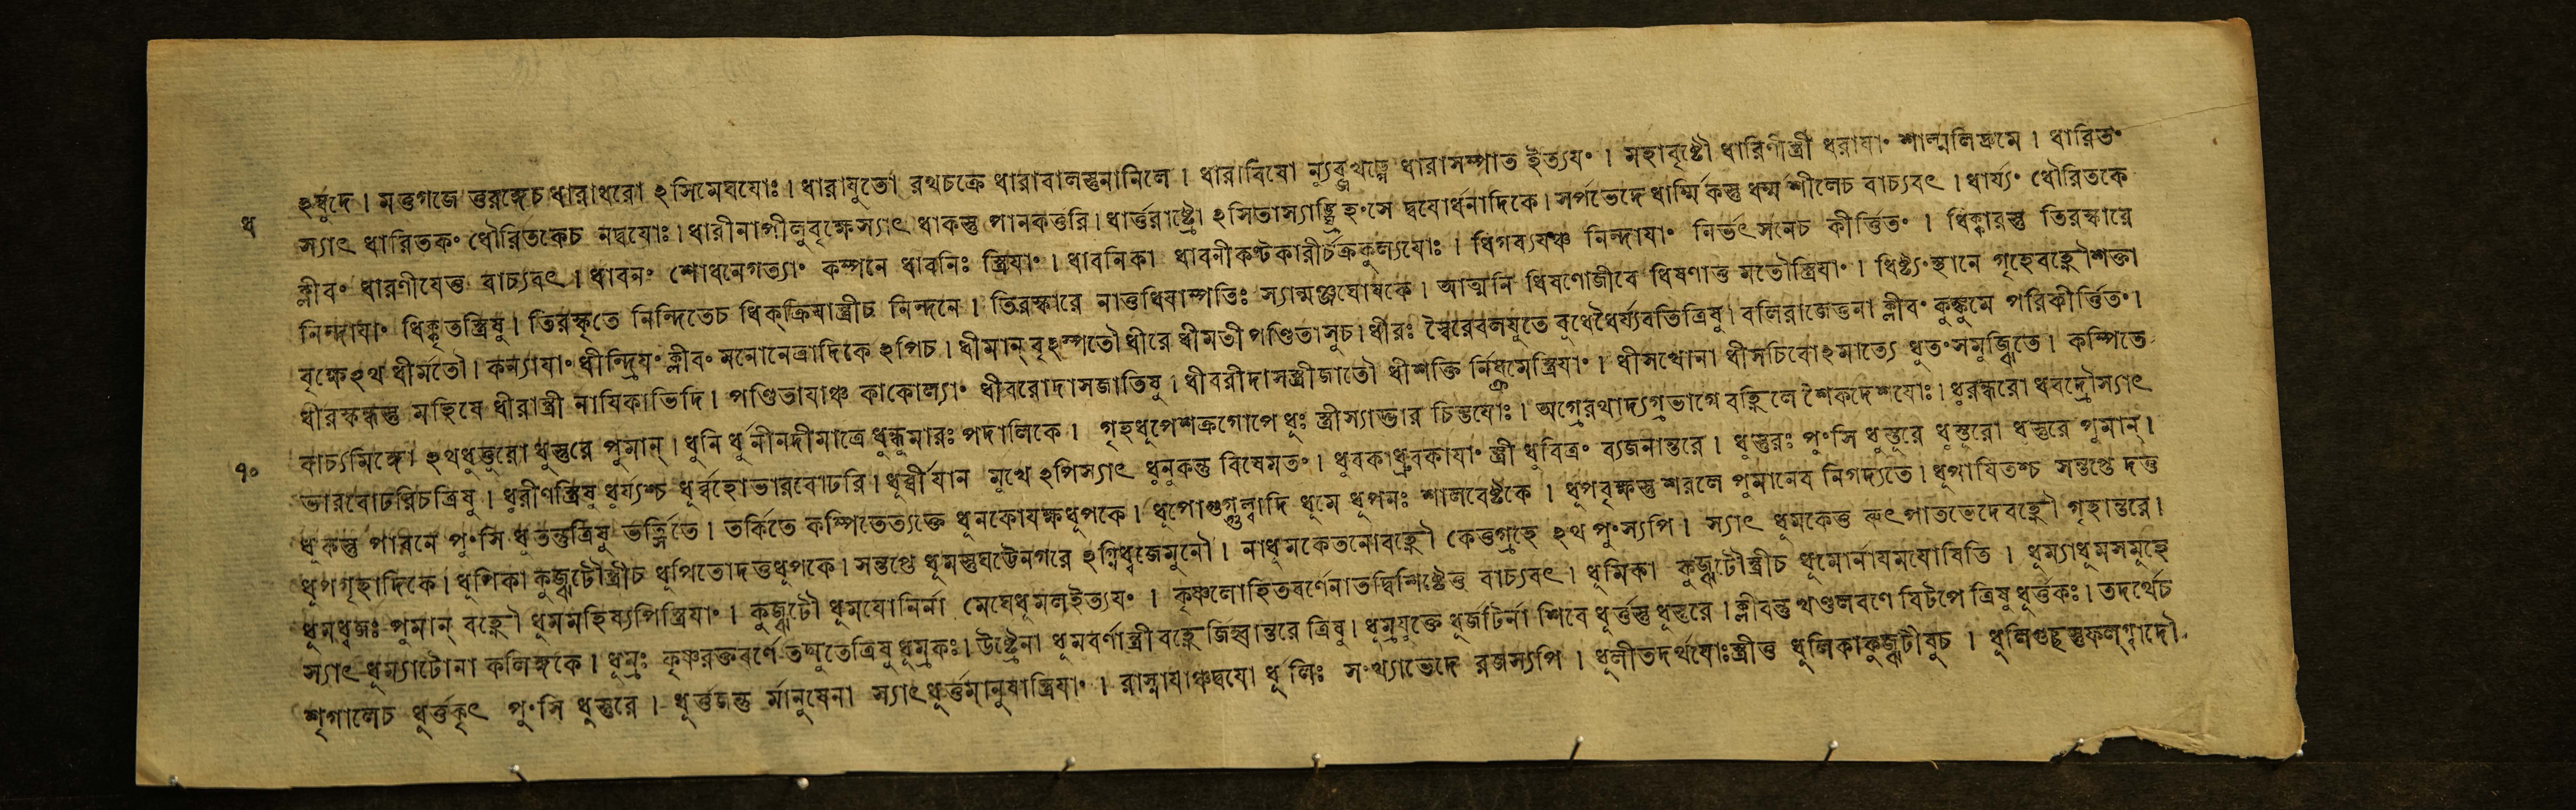 ঽম্বুদে। মত্তগজে ত্তরঙ্গেচ ধারাধরো ঽসিমেঘযোঃ। ধারাযুতো রথচক্রে ধারাবালস্তুনানিলে। ধারাবিষো ধারাসম্পাত ইত্যযং। মহাবৃষ্টৌ ধারিণীস্ত্রী ধরাযাং শাল্মলিদ্রুমে। ধারিতং
ধ স্যাৎ ধারিতকং ধৌরিতকেচ নদ্বযোঃ। ধারীনাপীলুবৃক্ষেস্যাৎ ধাকস্তু পানকত্তরি। ধার্ত্তরাষ্ট্রো ঽসিতাস্যাঙ্ঘ্রিহংসে দ্বযোর্ধনাদিকে। সর্পভেদে ধার্ম্মিকস্তু ধর্ম্মশীলেচ বাচ্যবৎ। ধার্য্যং ধৌরিতকে
ক্লীবং ধারণীযেত্তু বাচ্যবৎ। ধাবনং শোধনেগত্যাং কম্পনে ধাবনিঃ স্ত্রিযাং। ধাবনিকা ধাবনীকণ্টকারীচক্রকুল্যযোঃ। ধিগব্যযঞ্চ নিন্দাযাং নির্ভৎসনেচ কীর্ত্তিতং। ধিক্কারস্তু তিরস্কারে
নিন্দাযাং ধিক্কৃতস্ত্রিষু। তিরস্কৃতে নিন্দিতেচ ধিক্‌ক্রিযাস্ত্রীচ নিন্দনে। তিরস্কারে নাত্তধিষাম্পতিঃ স্যান্মঞ্জঘোষকে। আত্মনি ধিষণোজীবে ধিষণাত্ত মতৌস্ত্রিযাং। ধিষ্ট্যংস্থানে গৃহেবহ্নৌশক্তা
বৃক্ষেঽথ ধীর্মতৌ। কন্যাযাং ধীন্দ্রিযং ক্লীবং মনোনেত্রাদিকে ঽপিচ। ধীমান্ বৃহস্পতৌ ধীরে ধীমতী পণ্ডিতাসুচ। ধীরঃ স্বৈরেবলযুতে বুধেধৈর্য্যবতিত্রিষু। বলিরাজেত্তনা ক্লীবং কুঙ্কুমে পরিকীর্ত্তিতং।
ধীরস্কন্ধস্তু মহিষে ধীরাস্ত্রী নাযিকাভিদি। পণ্ডিতাযাঞ্চ কাকোল্যাং ধীবরোদাসজাতিষু। ধীবরীদাসস্ত্রীজাতৌ ধীশক্তি র্নিষ্ক্রমেস্ত্রিযাং। ধীসখোনা ধীসচিবোঽমাত্যে ধুতংসমুজ্ঝিতে। কম্পিতে
বাচ্যমিঙ্গে। ঽথধুত্তুরো ধুস্তুরে পুমান্। ধুনি র্ধুনীনদীমাত্রে ধুন্ধুমারঃ পদালিকে। গৃহধুপেশক্রগোপে ধুঃ স্ত্রীস্যাদ্ভার চিন্তযোঃ। অগ্রেরথাদ্যগ্রভাগে বহ্নিলে শৈকদেশযোঃ। ধুরন্ধরো ধবদ্রৌস্যাৎ
৭০ ভারবোঢরিচত্রিষু। ধুরীণস্ত্রিষু ধুর্য্যশ্চ ধুর্ব্বহোভারবোঢরি। ধূর্ব্বীযান মুখে ঽপিস্যাৎ ধুনুকস্তু বিষেমতং। ধুবকাধ্রুবকাযাং স্ত্রী ধুবিত্রং ব্যজনান্তরে। ধুস্তুরঃ পুংসি ধুস্তূরে ধূস্তূরো ধস্তুরে পুমান্।
ধূকস্তু পাবনে পুংসি ধূতস্তুত্রিষু ভর্ত্সিতে। তর্কিতে কম্পিতেত্যক্তে ধূনকোযক্ষধূপকে। ধূপোগুগ্গুল্বাদি ধূমে ধূপনঃ শালবেষ্টকে। ধূপবৃক্ষস্তু শরলে পুমানেব নিগদ্যতে। ধূপাযিতশ্চ সন্তপ্তে দত্ত
ধুপগৃহাদিকে। ধূপিকা কুজ্ঝটৌস্ত্রীচ ধূপিতোদত্তধুপকে। সন্তপ্তে ধূমস্তুঘণ্টেনগরে ঽগ্নিধ্বজেমুনৌ। নাধূমকেতনোবহ্নৌ কেত্তগ্রহে ঽথ পুংস্যপি। স্যাৎ ধূমকেত্ত রুৎপাতভেদেবহ্নৌ গৃহান্তরে।
ধূমধ্বজঃ পুমান্ বহ্নৌ ধূমমহিষ্যপিস্ত্রিযাং। কুজ্ঝটৌ ধূমযোনির্না মেঘেধূমলইত্যযং। কৃষ্ণলোহিতবর্ণেনাতদ্বিশিষ্টেত্তু বাচ্যবৎ। ধূমিকা কুজ্ঝটৌস্ত্রীচ ধূমোর্নাযমযোষিতি। ধূম্যাধূমসমুহে
স্যাৎ ধূম্যাটোনা কলিঙ্গকে। ধূম্রঃ কৃষ্ণরক্তবর্ণে তদ্যুতেত্রিষু ধূম্রকঃ। উষ্ট্রেনা ধূমবর্ণাস্ত্রী বহ্নের্জিহ্বান্তরে ত্রিষু। ধূম্রযুক্তে ধূর্জটির্না শিবে ধূর্ত্তস্তু ধূস্তুরে। ক্লীবন্তু খণ্ডলবণে বিটপে ত্রিষু ধূর্ত্তকঃ। তদর্থেচ
শৃগালেচ ধূর্ত্তকৃৎ পুংসি ধুস্তুরে। ধূর্ত্তজন্তু র্মানুষেনা স্যাৎধূর্ত্তমানুষাস্ত্রিযাং। রাস্নাযাঞ্চদ্বযো র্ধূলিঃ সংখ্যাভেদে রজস্যপি। ধূলীতদর্থযোঃস্ত্রীত্ত ধূলিকাকুজ্ঝটীষুচ। ধূলিগুচ্ছস্তুফল্গ্বাদৌ